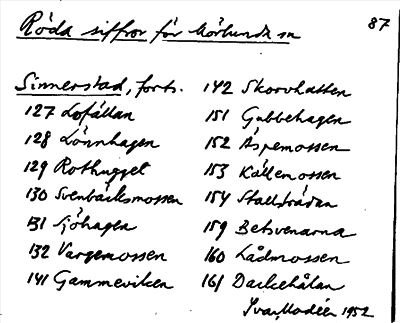 Röda siffror för Mörlunda sn
87
Sinnerstad, forts.
127 Lofällan
128 Lönnhagen
129 Rothugget
130 Svenbäcksmossen
131 Sjöhagen
132 Vargemossen
141 Gammeviken
142 Skorvhatten
151 Gubbehagen
152 Äspemossen
153 Källemossen
154
159 Betsvenarna
160 Lådmossen
161 Dackehålan
Ivar Modéer 1952